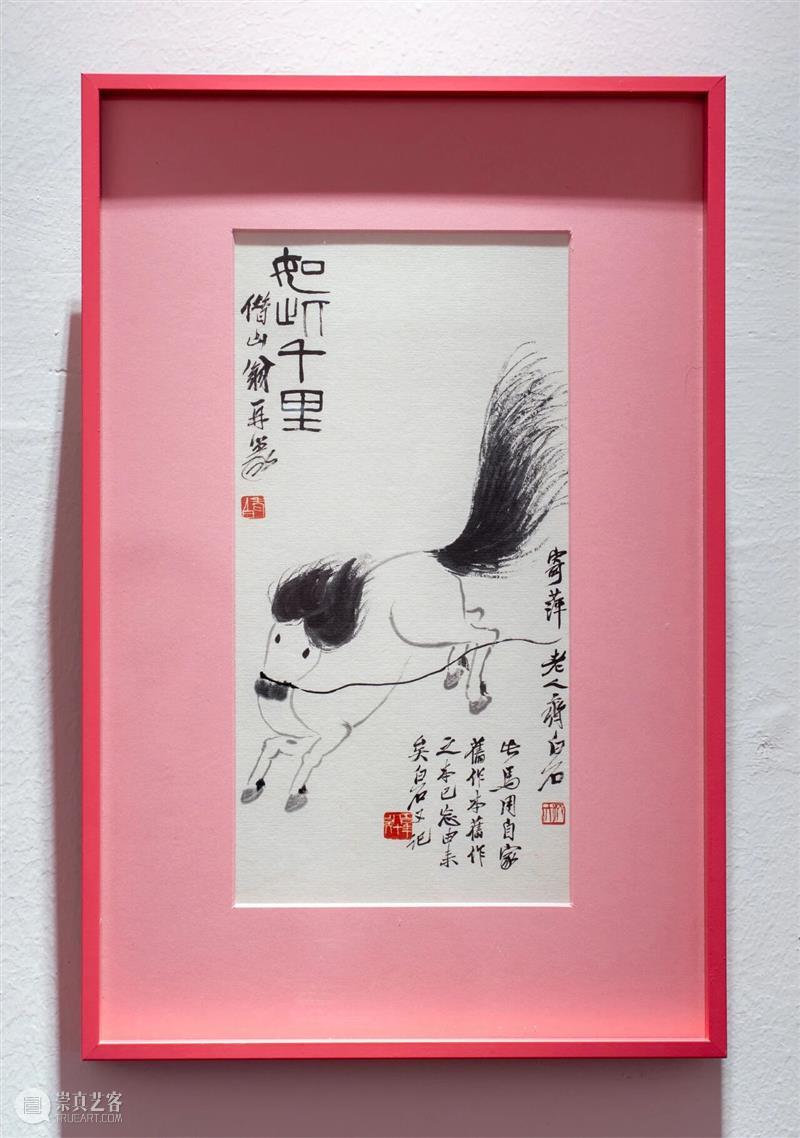 如此千里
借山翁再篆
寄萍老人齊白石
此馬用自家
舊作本舊作
之本已忘由来
矣白石又記
崇真艺客
TRUEART.COM